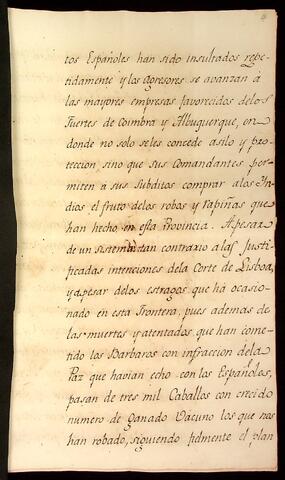 tos Españoles han sido insultados repe-
tidamente y los agresores se avanzan á
las mayores empresas favorecidos delos
Fuertes de Coimbra y Albuquerque, en
donde no solo seles concede asilo y pro-
teccion sino que sus Comandantes per-
miten a sus subditos comprar alos Yn-
dios el fruto delos robos y rapiñas que
han hecho en esta Provincia. Apesar
de un sistema tan contrario alas Justi-
ficadas intenciones dela Corte de Lisboa,
y apesar delos estragos que há ocasio-
nado en esta Frontera, pues ademas de
las muertes y atentados que han come-
tido los Barbaros con infraccion dela
Paz que havian echo con los Españoles,
pasan de tres mil Caballos con crecido
numero de Ganado Vacuno los que nos
han robado, siguiendo fielmente el plan